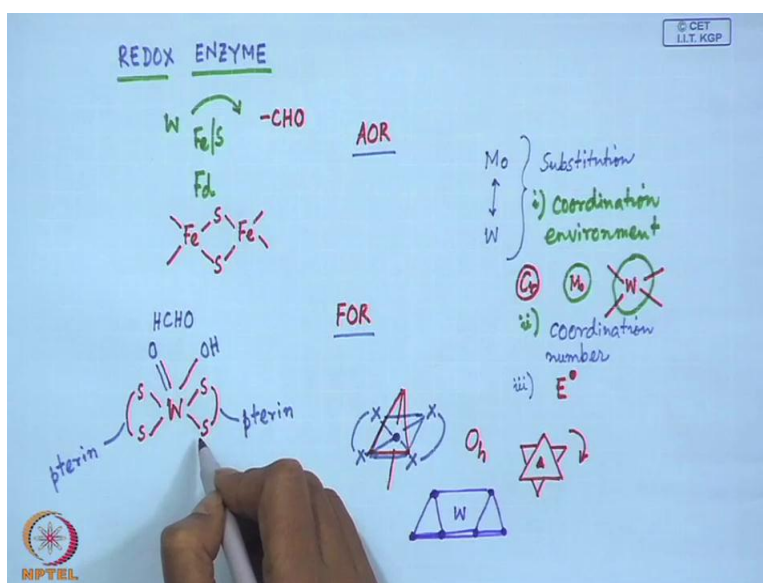 © CET
I.I.T. KGP
REDOX ENZYME
W
Fe/S
-CHO
Fd.
S
Fe Fe
S
AOR
Mo
W
Substitution
i) coordination
environment
Cr Mo W
ii) coordination
number
iii) E°
HCHO
O OH
S S
W
S S
pterin
pterin
FOR
X X
X X
Oh
W
NPTEL